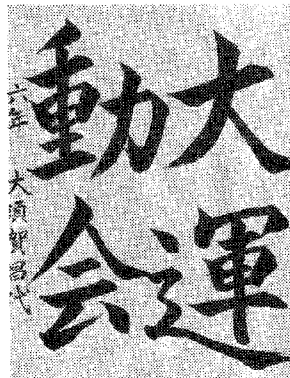 大運
動会
六年 大須賀昌代